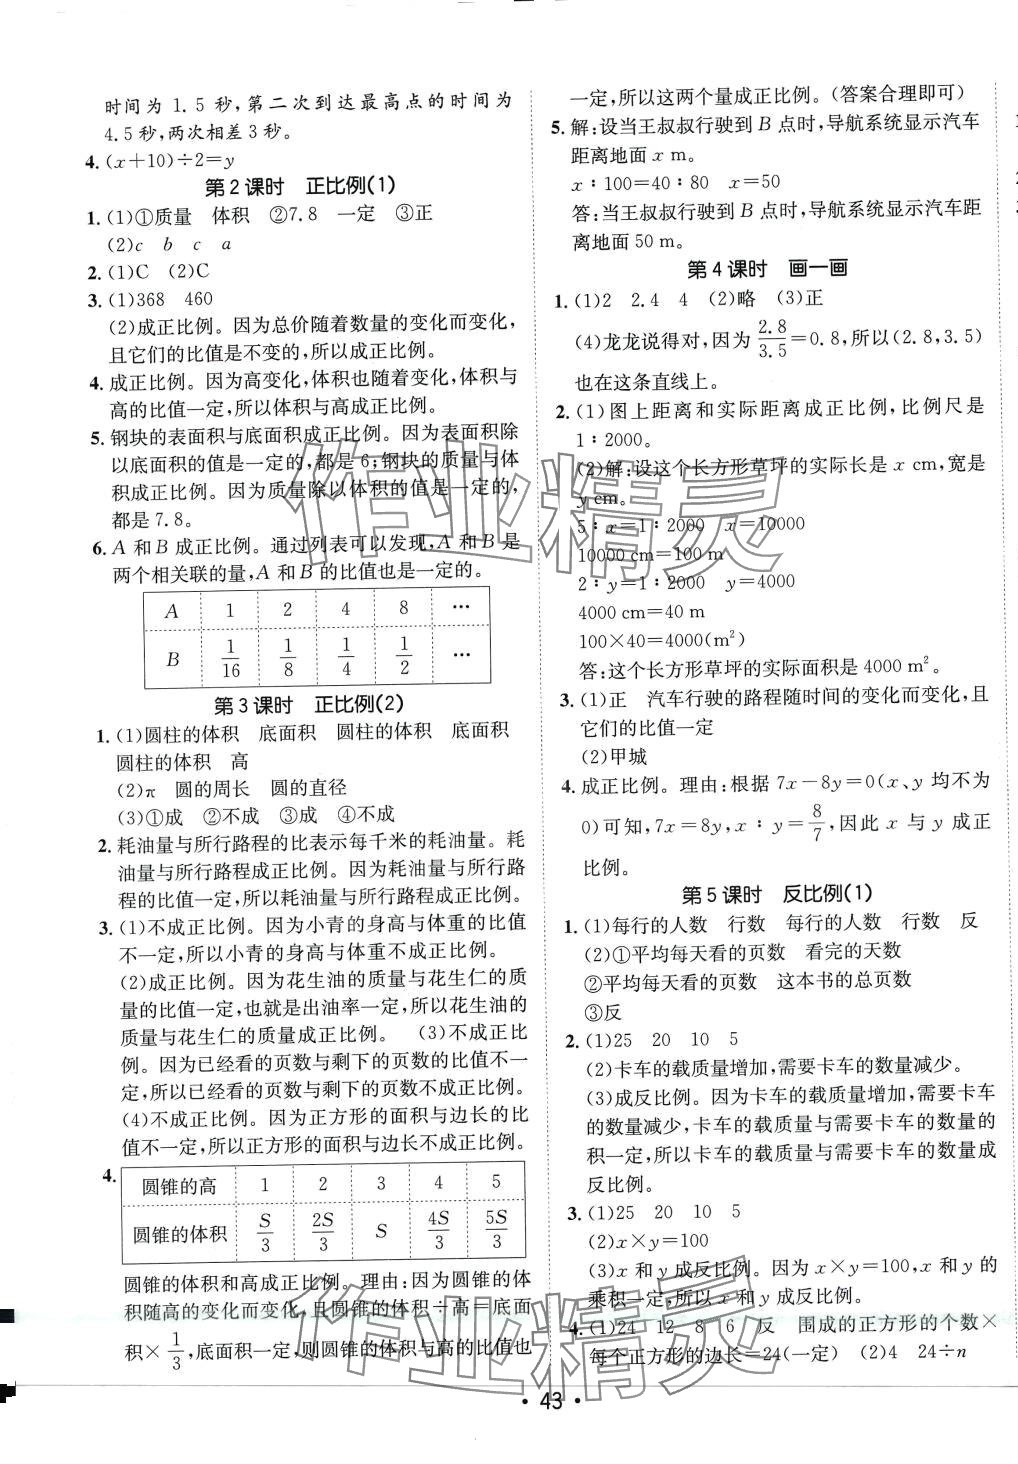 时间为 1.5 秒,第二次到达最高点的时间为
4.5秒,两次相差3秒。
4. (x+10)÷2=y
第2课时 正比例(1)
1. (1)①质量 体积 ②7.8 一定 ③正
(2)c b c a
2. (1)C (2)C
3. (1)368 460
(2)成正比例。因为总价随着数量的变化而变化,
且它们的比值是不变的,所以成正比例。
4. 成正比例。因为高变化,体积也随着变化,体积与
高的比值一定,所以体积与高成正比例。
5. 钢块的表面积与底面积成正比例。因为表面积除
以底面积的值是一定的,都是6;钢块的质量与体
积成正比例。因为质量除以体积的值是一定的,
都是7.8。
6. A 和 B 成正比例。通过列表可以发现,A 和 B 是
两个相关联的量,A 和 B 的比值也是一定的。
A 1 2 4 8 …
B 1/16 1/8 1/4 1/2 …
第3课时 正比例(2)
1. (1)圆柱的体积 底面积 圆柱的体积 底面积
圆柱的体积 高
(2)π 圆的周长 圆的直径
(3)①成 ②不成 ③成 ④不成
2. 耗油量与所行路程的比表示每千米的耗油量。耗
油量与所行路程成正比例。因为耗油量与所行路
程的比值一定,所以耗油量与所行路程成正比例。
3. (1)不成正比例。因为小青的身高与体重的比值
不一定,所以小青的身高与体重不成正比例。
(2)成正比例。因为花生油的质量与花生仁的质
量的比值一定,也就是出油率一定,所以花生油的
质量与花生仁的质量成正比例。 (3)不成正比
例。因为已经看的页数与剩下的页数的比值不一
定,所以已经看的页数与剩下的页数不成正比例。
(4)不成正比例。因为正方形的面积与边长的比
值不一定,所以正方形的面积与边长不成正比例。
4. 圆锥的高 1 2 3 4 5
圆锥的体积 S/3 2S/3 S 4S/3 5S/3
圆锥的体积和高成正比例。理由:因为圆锥的体
积随高的变化而变化,且圆锥的体积÷高=底面
积×1/3,底面积一定,则圆锥的体积与高的比值也
一定,所以这两个量成正比例。(答案合理即可)
5. 解:设当王叔叔行驶到 B 点时,导航系统显示汽车
距离地面 x m。
x∶100=40∶80 x=50
答:当王叔叔行驶到 B 点时,导航系统显示汽车距
离地面 50 m。
第4课时 画一画
1. (1)2 2.4 4 (2)略 (3)正
(4)龙龙说得对,因为2.8/3.5=0.8,所以(2.8,3.5)
也在这条直线上。
2. (1)图上距离和实际距离成正比例,比例尺是
1∶2000。
(2)解:设这个长方形草坪的实际长是 x cm,宽是
y cm。
5∶x=1∶2000 x=10000
10000 cm=100 m
2∶y=1∶2000 y=4000
4000 cm=40 m
100×40=4000(m²)
答:这个长方形草坪的实际面积是 4000 m²。
3. (1)正 汽车行驶的路程随时间的变化而变化,且
它们的比值一定
(2)甲城
4. 成正比例。理由:根据 7x-8y=0(x、y 均不为
0)可知,7x=8y,x∶y=8/7,因此 x 与 y 成正
比例。
第5课时 反比例(1)
1. (1)每行的人数 行数 每行的人数 行数 反
(2)①平均每天看的页数 看完的天数
②平均每天看的页数 这本书的总页数
③反
2. (1)25 20 10 5
(2)卡车的载质量增加,需要卡车的数量减少。
(3)成反比例。因为卡车的载质量增加,需要卡车
的数量减少,卡车的载质量与需要卡车的数量的
积一定,所以卡车的载质量与需要卡车的数量成
反比例。
3. (1)25 20 10 5
(2)x×y=100
(3)x 和 y 成反比例。因为 x×y=100,x 和 y 的
乘积一定,所以 x 和 y 成反比例。
4. (1)24 12 8 6 反 围成的正方形的个数×
每个正方形的边长=24(一定) (2)4 24÷n
· 43 ·
作业精灵
作业精灵